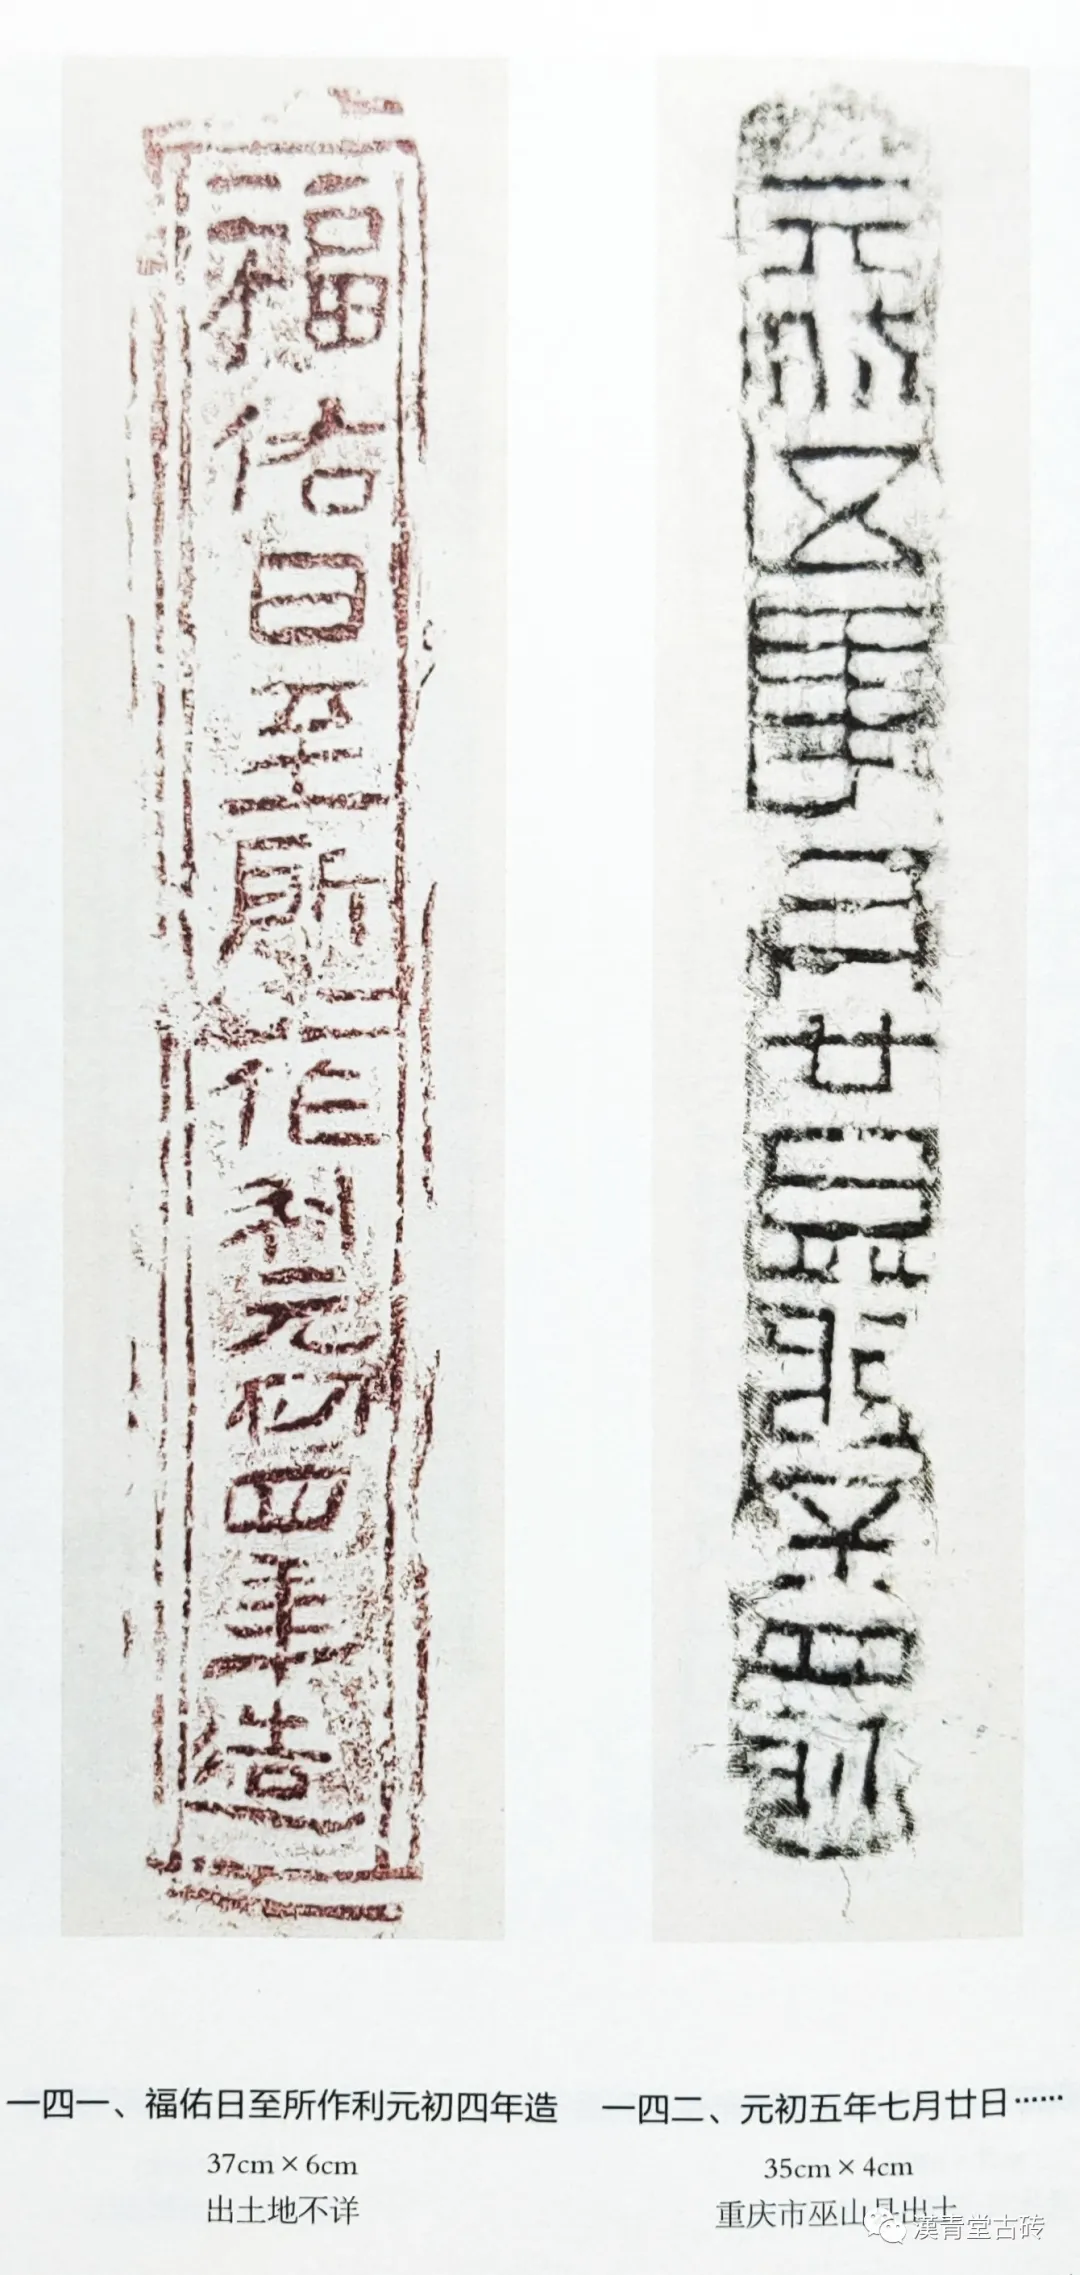 福佑日至所作利元初四年造
元初五年七月廿日
一四一、福佑日至所作利元初四年造
37cm×6cm
出土地不详
一四二、元初五年七月廿日……
35cm×4cm
重庆市巫山县出土
漢青堂古砖